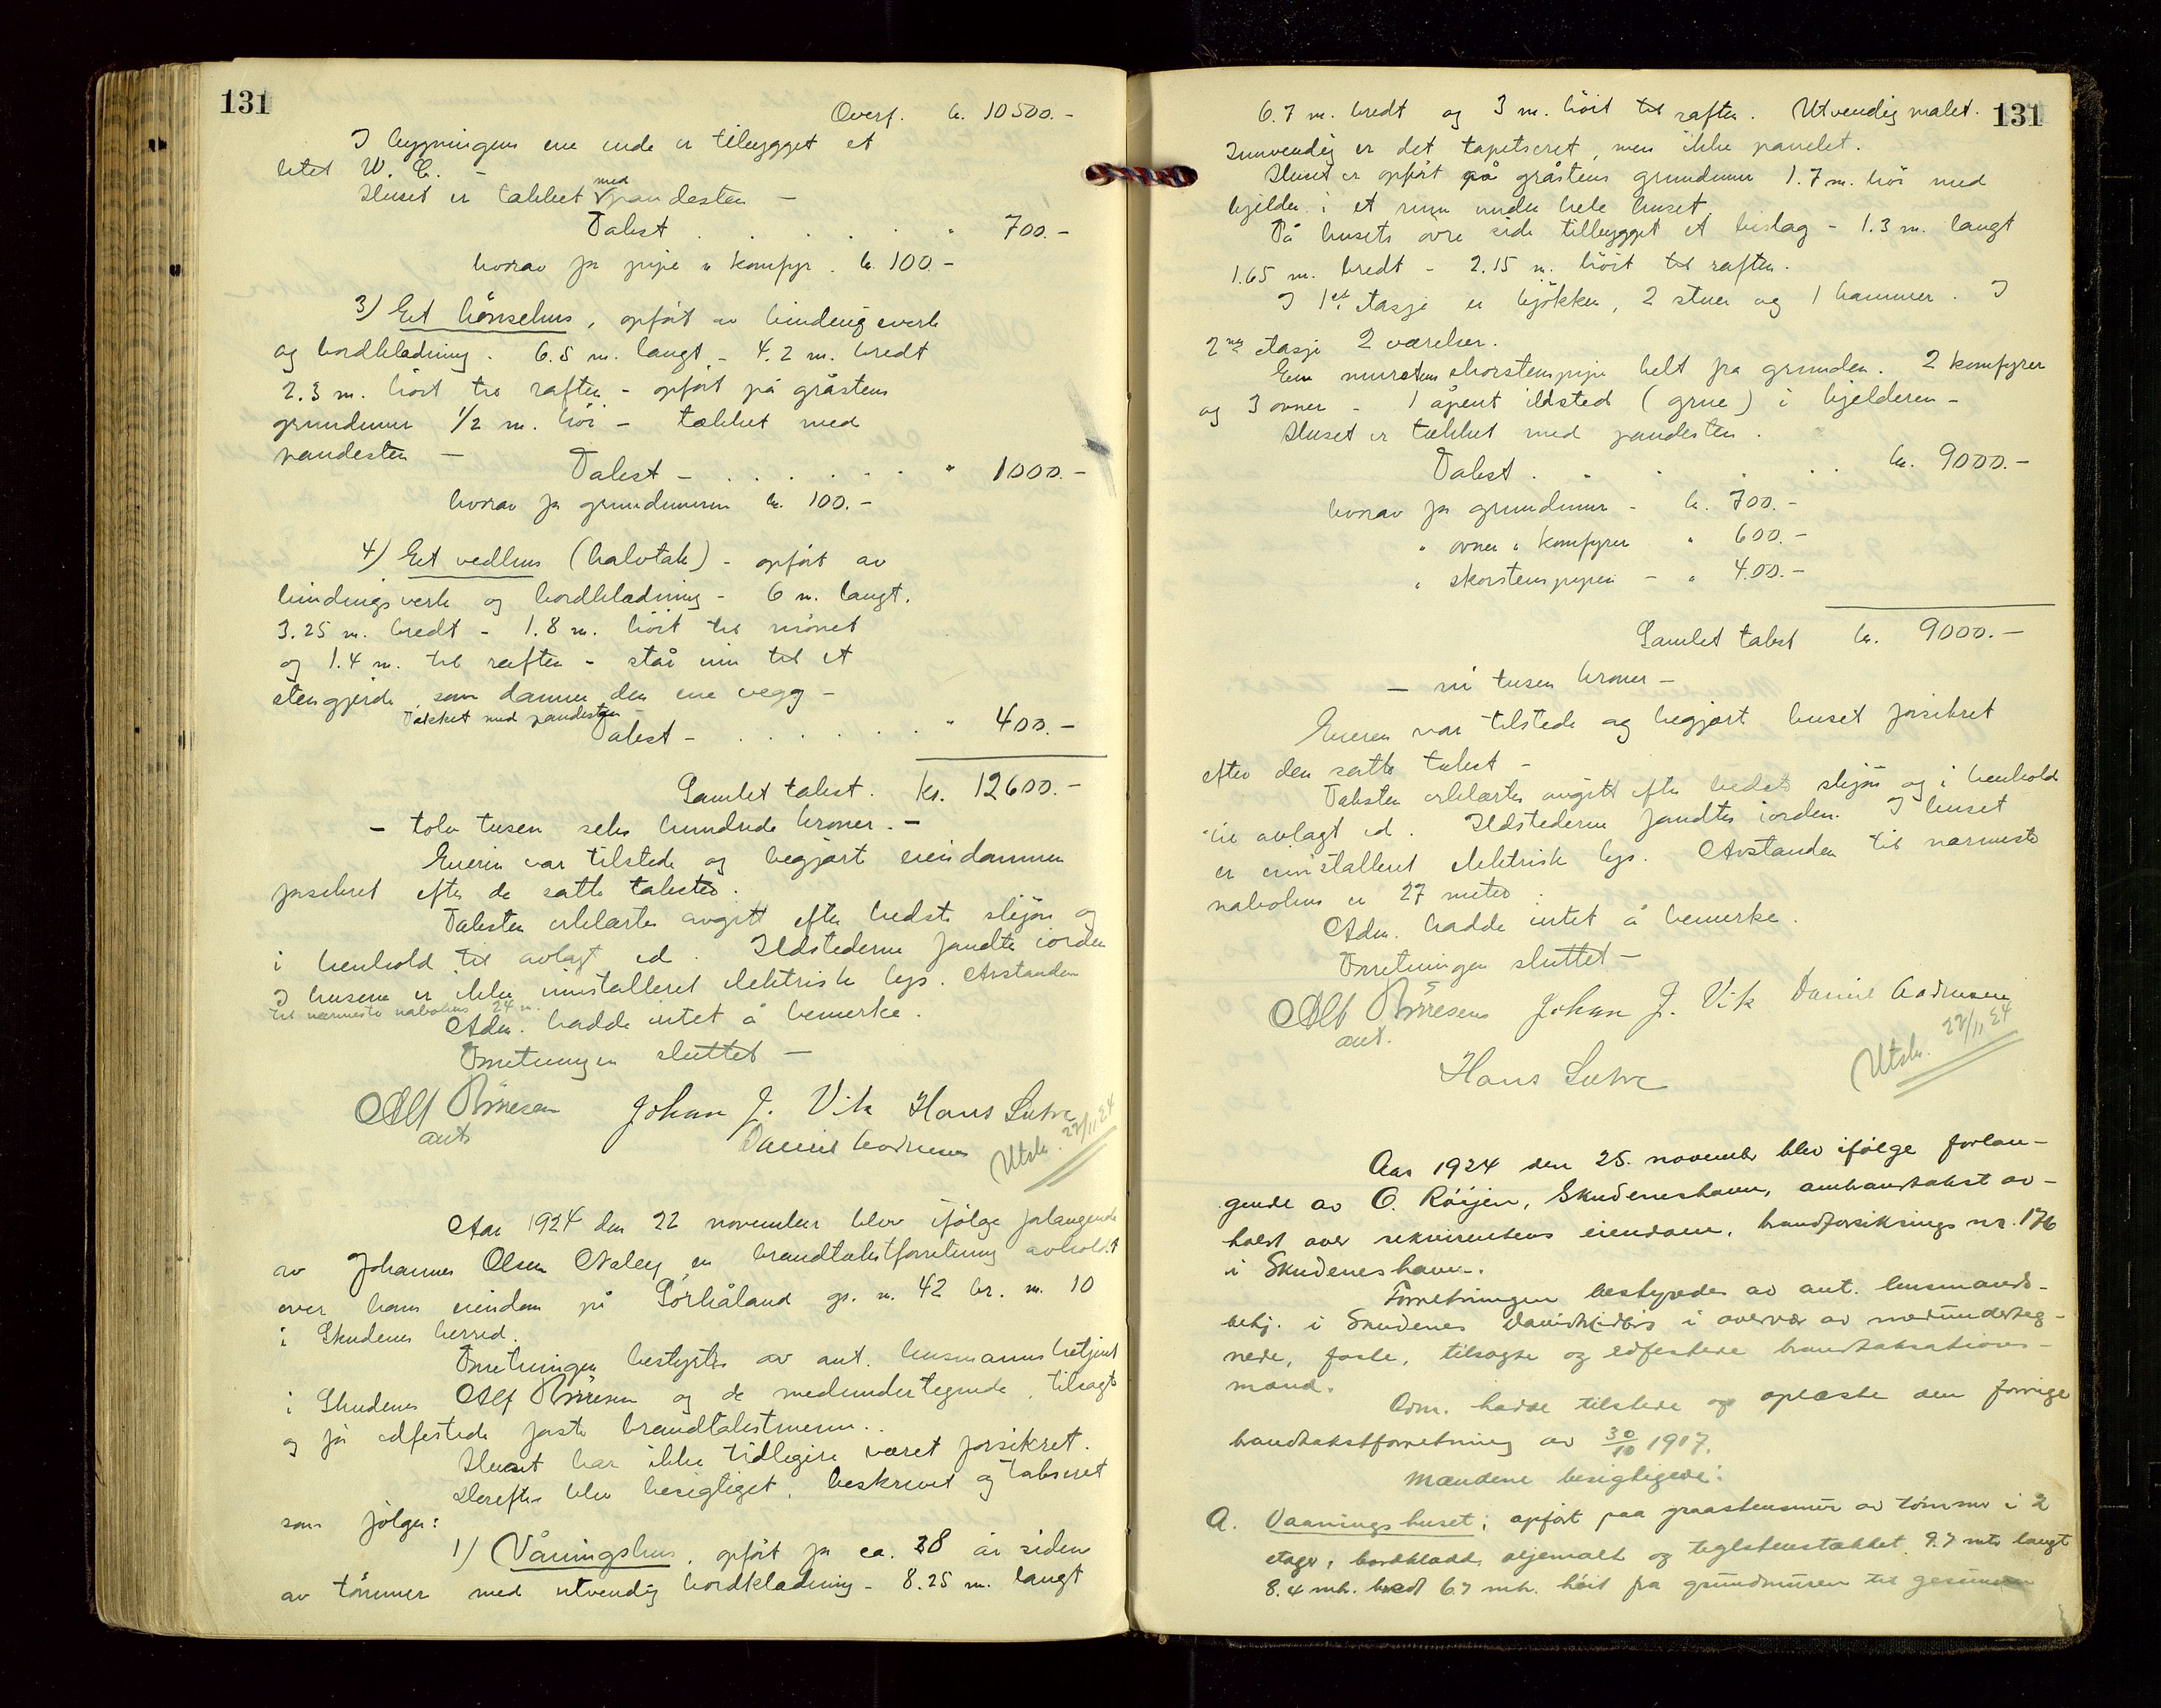 131
Overf. kr. 10500.-
I bygningens ene ende er tilbygget et
litet W. C. -
Huset er tækket med pandesten -
Takst . . . . . " 700.-
hvorav for pipe & komfyr. kr. 100.-
3) Et hönsehus, opfört av bindingsverk
og bordklædning. 6.5 m. langt - 4.2 m. bredt
2.3 m. höit til raften - opfört på gråstens
grundmur 1/2 m. höi - tækket med
pandesten -
Takst - . . . . . " 1000.-
hvorav for grundmuren kr. 100.-
4) Et vedhus (halvtak) - opfört av
bindingsverk og bordklædning - 6 m. langt.
3.25 m. bredt - 1.8 m. höit til mönet
og 1.4 m. til raften - står inn til et
stengjerde som danner den ene vegg -
Tækket med pandesten -
Takst - . . . . . . " 400.-
Samlet takst. kr. 12600.-
- tolv tusen seks hundrede kroner. -
Eieren var tilstede og begjært eiendommen
forsikret efter de satte takster.
Taksten erklærtes avgitt efter bedste skjön og
i henhold til avlagt ed. Ildstederne fandtes iorden
I husene er ikke innstalleret elektrisk lys. Avstanden
til nærmeste nabohus 24 m.
Adm. hadde intet å bemerke.
Forretningen sluttet -
Alf Börresen Johan J. Vik Hans Sætre
ant.
Utskr. 22/11 24
Aar 1924 den 22 november blev ifölge forlangende
av Johannes Olsen en brandtakstforretning avholdt
over hans eiendom på Sörhåland gr. nr. 42 br. nr. 10
i Skudenes herred.
Forretningen bestyrtes av ant. lensmannsbetjent
i Skudenes Alf Börresen og de medundertegnede, tilsagte
og för edfestede faste brandtakstmenn.
Huset har ikke tidligere været forsikret.
Derefter blev besigtiget, beskrevet og takseret
som fölger:
1) Våningshus, opfört for ca. 28 år siden
av tömmer med utvendig bordklædning - 8.25 m. langt
131
6.7 m. bredt og 3 m. höit til raften. Utvendig malet.
Innvendig er det tapetseret, men ikke panelet.
Huset er opfört på gråstens grundmur 1.7 m. höi med
kjelder i et rum under hele huset.
På husets övre side tilbygget et bislag - 1.3 m. langt
1.65 m. bredt - 2.15 m. höit til raften.
I 1ste etasje er kjökken, 2 stuer og 1 kammer. I
2nen etasje 2 værelser.
Een murstens skorstenspipe helt fra grunden. 2 komfyrer
og 3 ovner - 1 åpent ildsted (grue) i kjelderen -
Huset er tækket med pandesten.
Takst . . . . . kr. 9000.-
hvorav for grundmur - kr. 700.-
" ovner & komfyrer " 600.-
" skorstenspipen - " 400.-
Samlet takst kr. 9000.-
- ni tusen kroner -
Eieren var tilstede og begjært huset forsikret
efter den satte takst -
Taksten erklærtes avgitt efter bedste skjön og i henhold
til avlagt ed. Ildstederne fandtes iorden. I huset
er innstalleret elektrisk lys. Avstanden til nærmeste
nabohus er 27 meter.
Adm. hadde intet å bemerke.
Forretningen sluttet -
Alf Börresen Johan J. Vik
ant.
Hans Sætre
Utskr. 22/11 24
Aar 1924 den 25. november blev ifölge forlan-
gende av O. Röijen, Skudeneshavn, ombrandtakst av-
holdt over rekvirentens eiendom, brandforsikrings nr. 176
i Skudeneshavn.
Forretningen bestyredes av ant. lensmands-
betj. i Skudenes i overvær av medunderteg-
nede, faste, tilsagte og edfestede brandtaksations-
mænd.
Adm. hadde tilstede og oplæste den forrige
brandtakstforretning av 30/10 1917.
Mændene besigtigede:
A. Vaaningshuset; opfört paa graastensmur av tömmer i 2
etager, bordklædt, oljemalt og teglstenstækket, 9.7 mtr langt
8.4 mtr. bredt 6.7 mtr. höit fra grundmuren til gesimsen